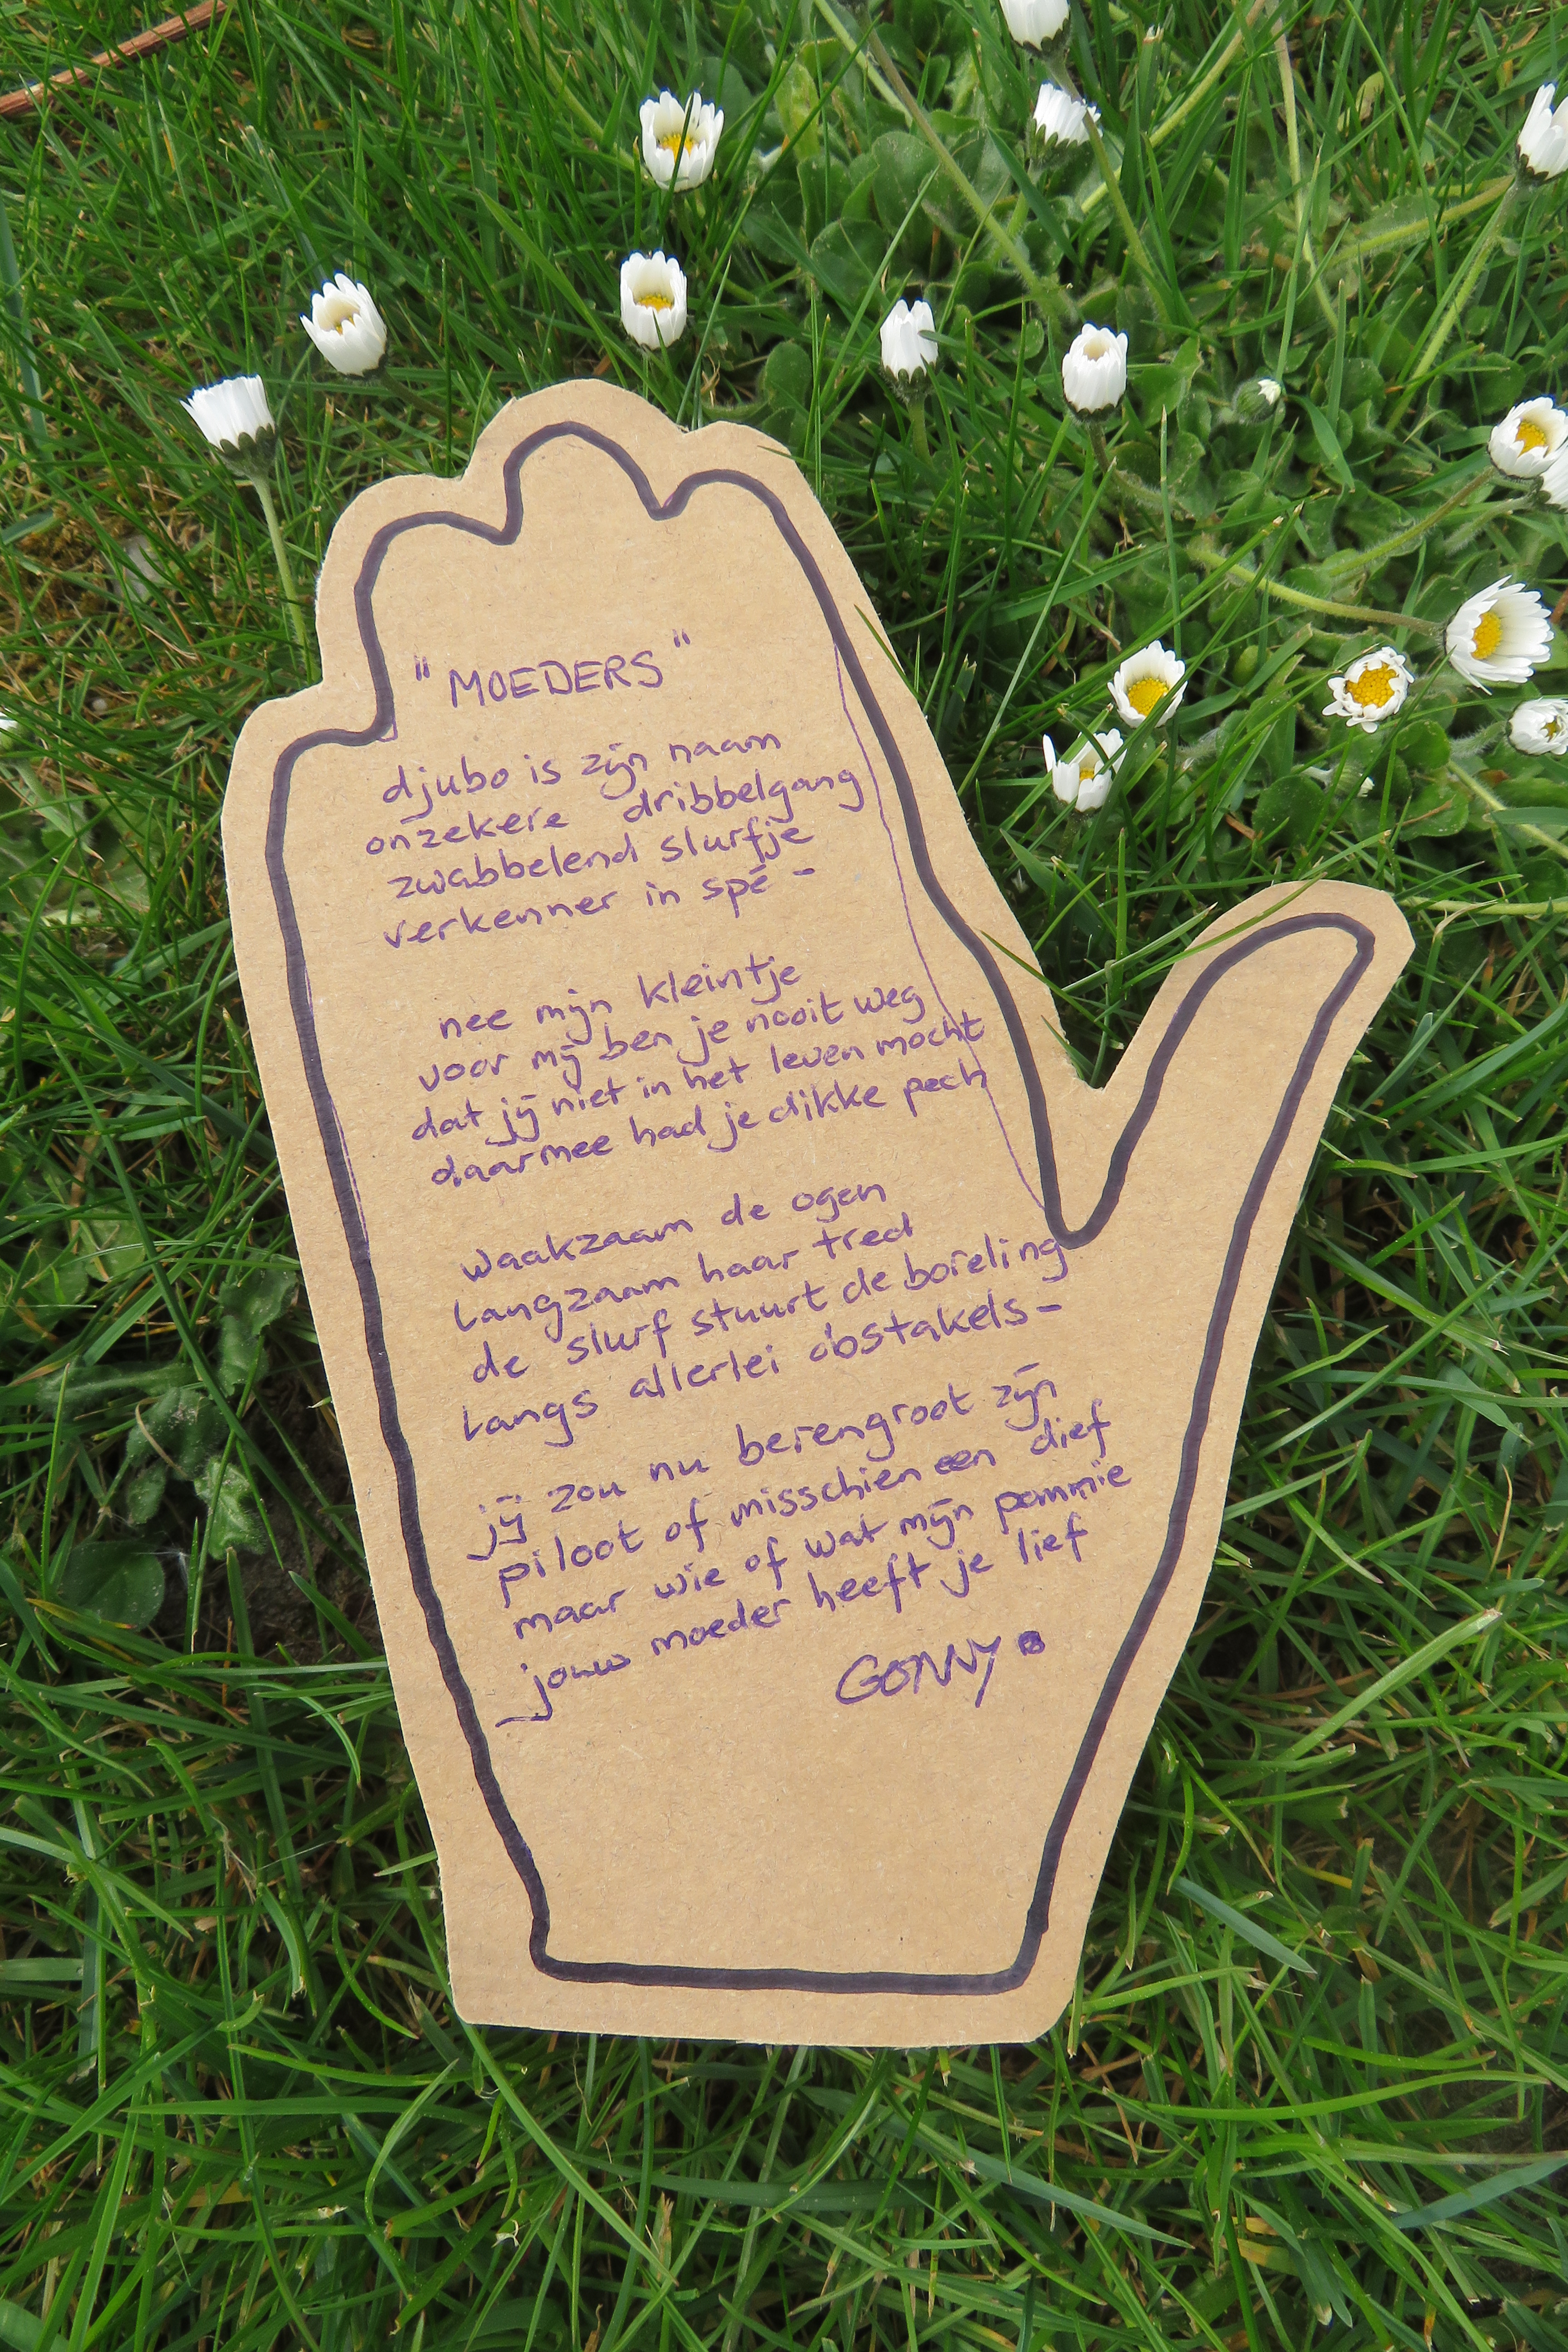 "MOEDERS"
djubo is zijn naam
onzekere dribbelgang
zwabbelend slurfje
verkenner in spé -
nee mijn kleintje
voor mij ben je nooit weg
dat jij niet in het leven mocht
daarmee had je dikke pech
waakzaam de ogen
langzaam haar tred
de slurf stuurt de boreling
langs allerlei obstakels-
jij zou nu berengroot zijn
piloot of misschien een dief
maar wie of wat mijn pommie
jouw moeder heeft je lief
GONNY